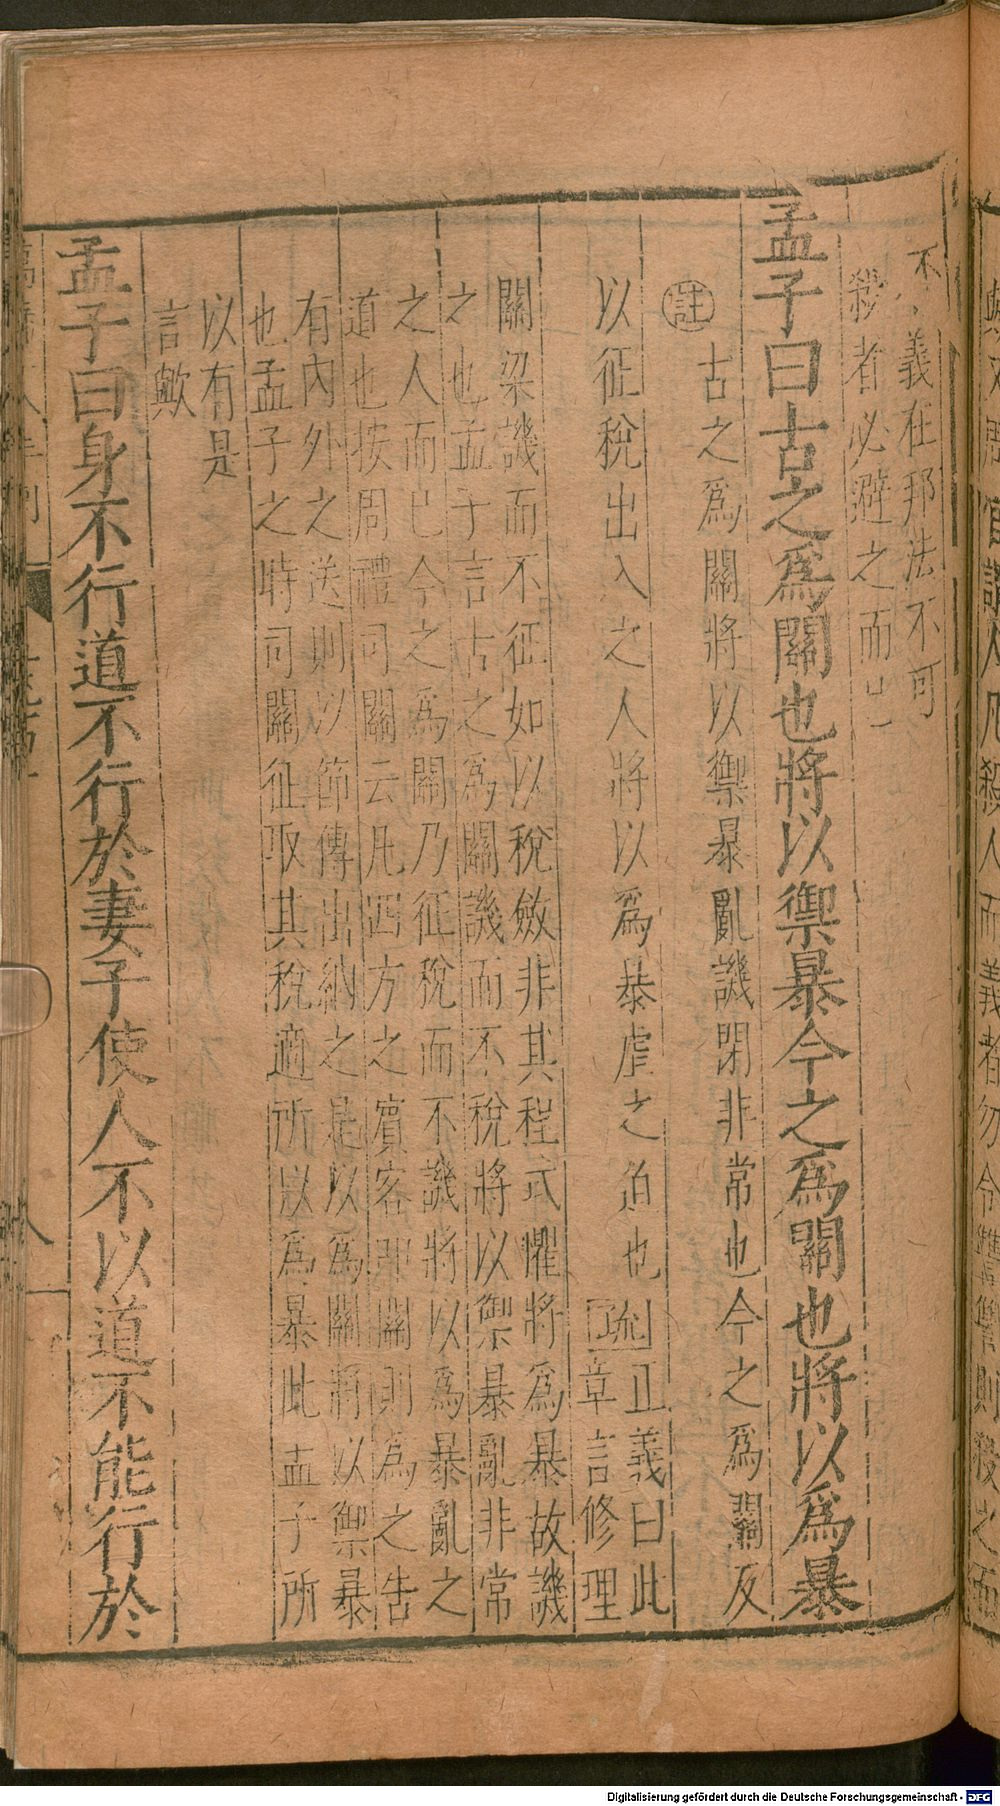 不義在邦法不可
殺者必避之而已
孟子曰古之為關也將以禦暴今之為關也將以為暴
註
古之為關將以禦暴亂譏閉非常也今之為關反
以征稅出入之人將以為暴虐之道也
疏
正義曰此
章言修理
關梁譏而不征如以稅斂非其程式懼將為暴故譏
之也孟子言古之為關譏而不稅將以禦暴亂非常
之人而已今之為關乃征稅而不譏將以為暴亂之
道也按周禮司關云凡四方之賓客叩關則為之告
有內外之送則以節傳出納之是以為關將以禦暴
也孟子之時司關征取其稅適所以為暴此孟子所
以有是
言歟
孟子曰身不行道不行於妻子使人不以道不能行於
八
義者勿令讐讐則殺之而
Digitalisierung gefördert durch die Deutsche Forschungsgemeinschaft - DFG